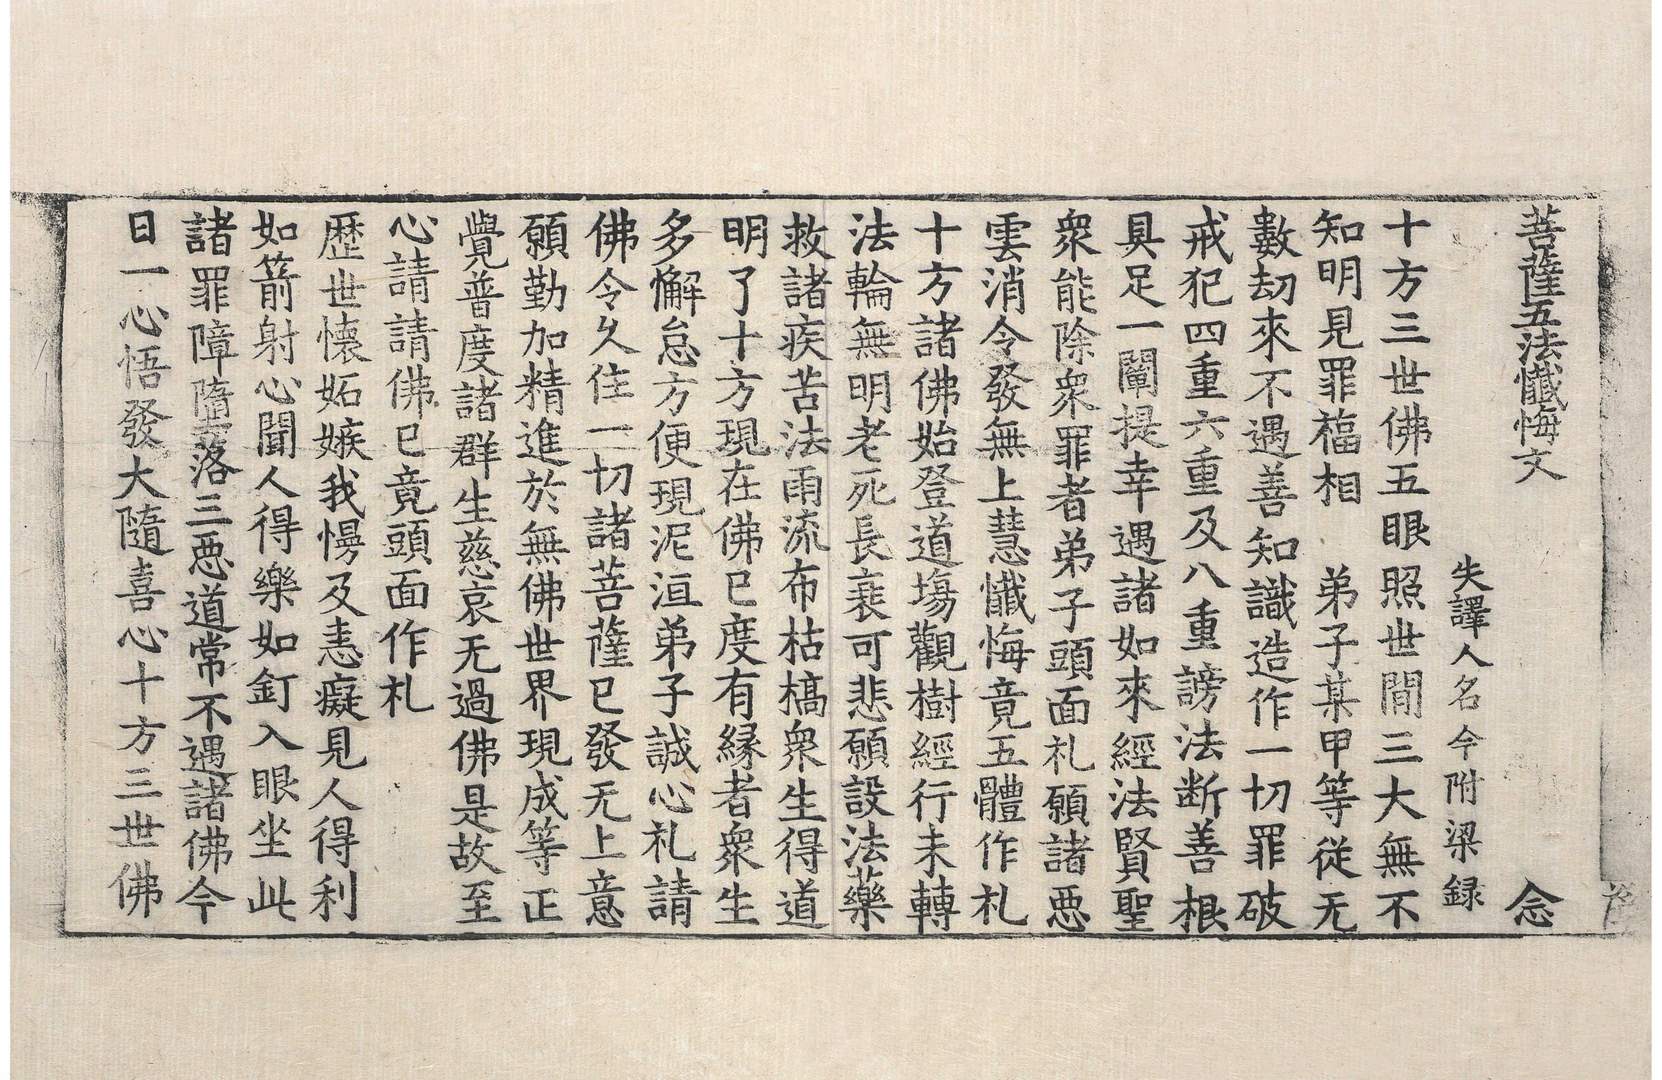 菩薩五法懺悔文 念
失譯人名今附梁録
十方三世佛五眼照世間三大無不
知明見罪福相 弟子某甲等從无
數劫來不遇善知識造作一切罪破
戒犯四重六重及八重謗法断善根
具足一闡提幸遇諸如來經法賢聖
衆能除衆罪者弟子頭面礼願諸惡
雲消令發無上慧懺悔竟五體作礼
十方諸佛始登道場觀樹經行未轉
法輪無明老死長衰可悲願設法藥
救諸疾苦法雨流布枯槁衆生得道
明了十方現在佛已度有縁者衆生
多懈怠方便現泥洹弟子誠心礼請
佛令久住一切諸菩薩已發无上意
願勤加精進於無佛世界現成等正
覺普度諸群生慈哀无過佛是故至
心請請佛已竟頭面作礼
歷世懐妬嫉我慢及恚癡見人得利
如箭射心聞人得樂如釘入眼坐此
諸罪障墮落三惡道常不遇諸佛今
日一心悟發大隨喜心十方三世佛